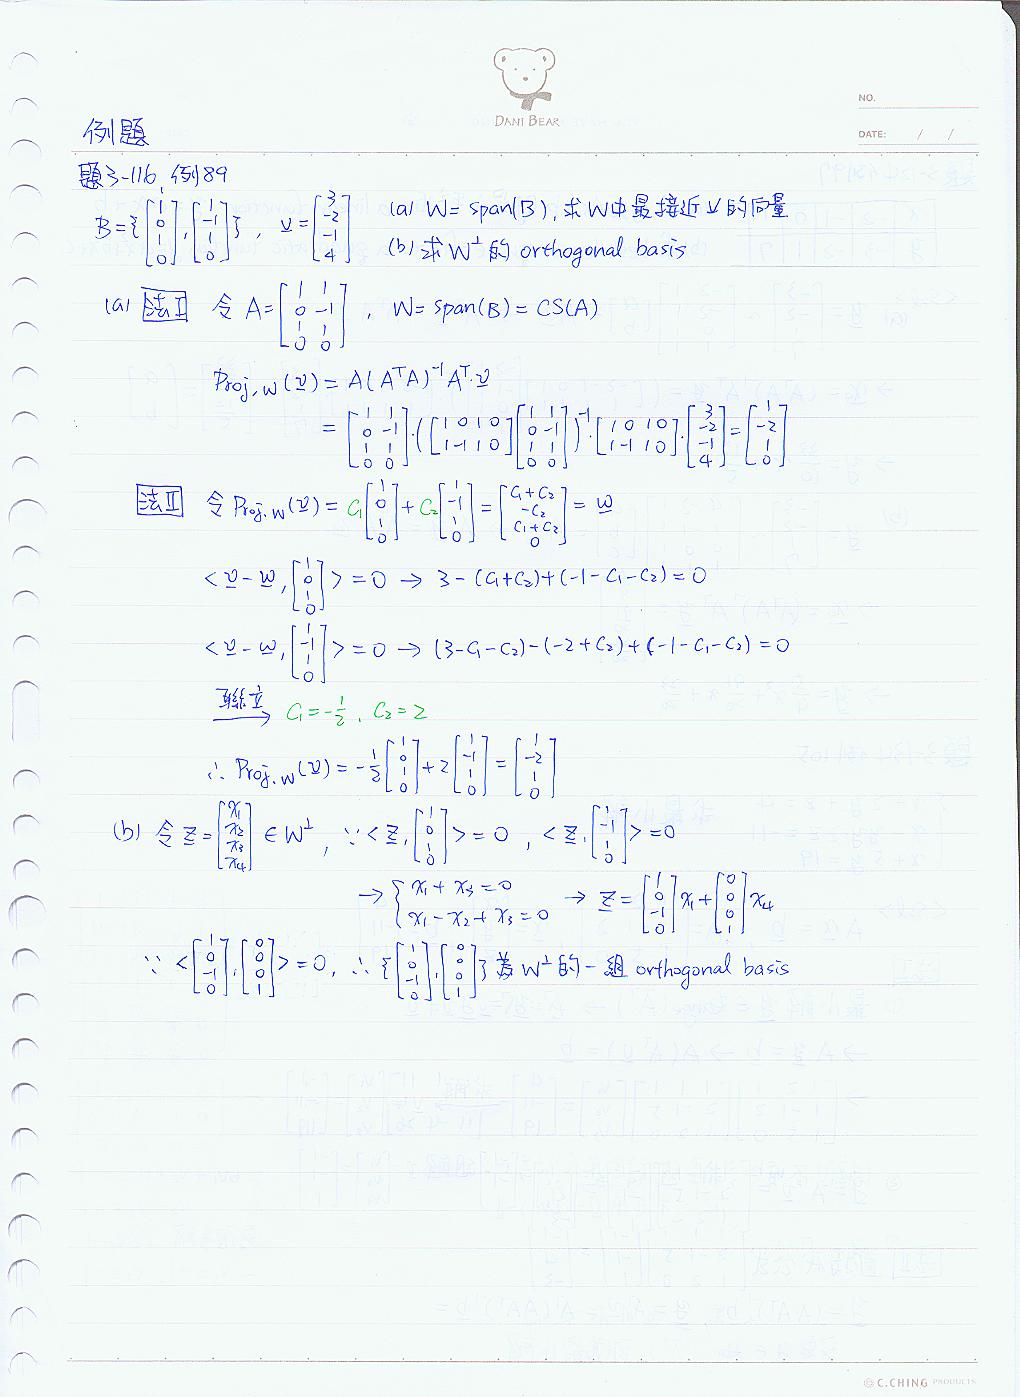 DANI BEAR
NO.
DATE: / /
例題
題3-116, 例89
B={[1 0 1 0], [1 -1 1 0]}, v=[3 -2 -1 4] (a) W=span(B), 求W中最接近v的向量
(b) 求W⊥的 orthogonal basis
(a) 法I 令 A=[1 1; 0 -1; 1 1; 0 0], W=span(B)=CS(A)
Proj,w(v)=A(AᵀA)⁻¹Aᵀ·v
=[1 1; 0 -1; 1 1; 0 0]·([1 0 1 0; 1 -1 1 0][1 1; 0 -1; 1 1; 0 0])⁻¹·[1 0 1 0; 1 -1 1 0]·[3 -2 -1 4]=[1 -2 1 0]
法II 令 Proj,w(v)=C₁[1 0 1 0]+C₂[1 -1 1 0]=[C₁+C₂ -C₂ C₁+C₂ 0]=w
<v-w, [1 0 1 0]>=0 → 3-(C₁+C₂)+(-1-C₁-C₂)=0
<v-w, [1 -1 1 0]>=0 → (3-C₁-C₂)-(-2+C₂)+(-1-C₁-C₂)=0
聯立→ C₁=-1/2, C₂=2
∴ Proj,w(v)=-1/2[1 0 1 0]+2[1 -1 1 0]=[1 -2 1 0]
(b) 令 z=[x₁ x₂ x₃ x₄]∈W⊥, ∵<z, [1 0 1 0]>=0, <z, [1 -1 1 0]>=0
→{x₁+x₃=0
x₁-x₂+x₃=0 → z=[1 0 -1 0]x₁+[0 0 0 1]x₄
∵ <[1 0 -1 0], [0 0 0 1]>=0, ∴{[1 0 -1 0], [0 0 0 1]} 為W⊥的一組 orthogonal basis
C.CHING PRODUCTS